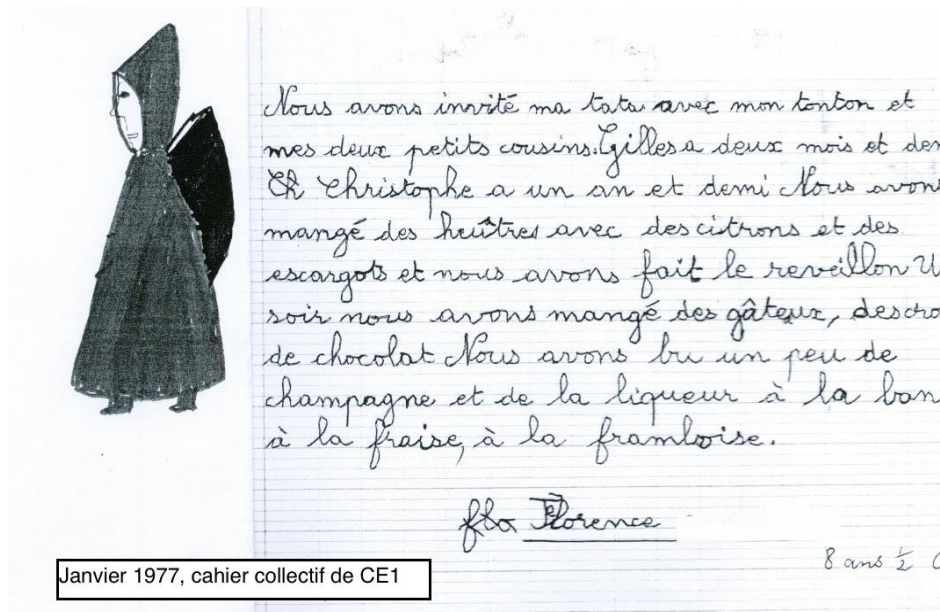 Nous avons invité ma tata avec mon tonton et
mes deux petits cousins. Gilles a deux mois et dem
Ch Christophe a un an et demi Nous avons
mangé des heûtres avec des citrons et des
escargots et nous avons fait le reveillon U
soir nous avons mangé des gâteux, des cro
de chocolat Nous avons bu un peu de
champagne et de la liqueur à la ban
à la fraise, à la framboise.
flo Florence
8 ans ½
Janvier 1977, cahier collectif de CE1